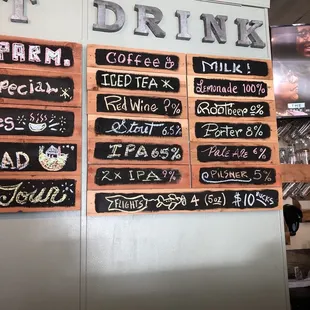 T
DRINK
PARM.
Special
AD
Tour
Coffee
ICED TEA
Red Wine ?%
Stout 6.5%
IPA 6.5%
2X IPA 9%
MILK!
Lemonade 100%
Rootbeer 0%
Porter 8%
Pale Ale 6%
PILSNER 5%
FLIGHTS 4 (5oz) $10 BUCKS